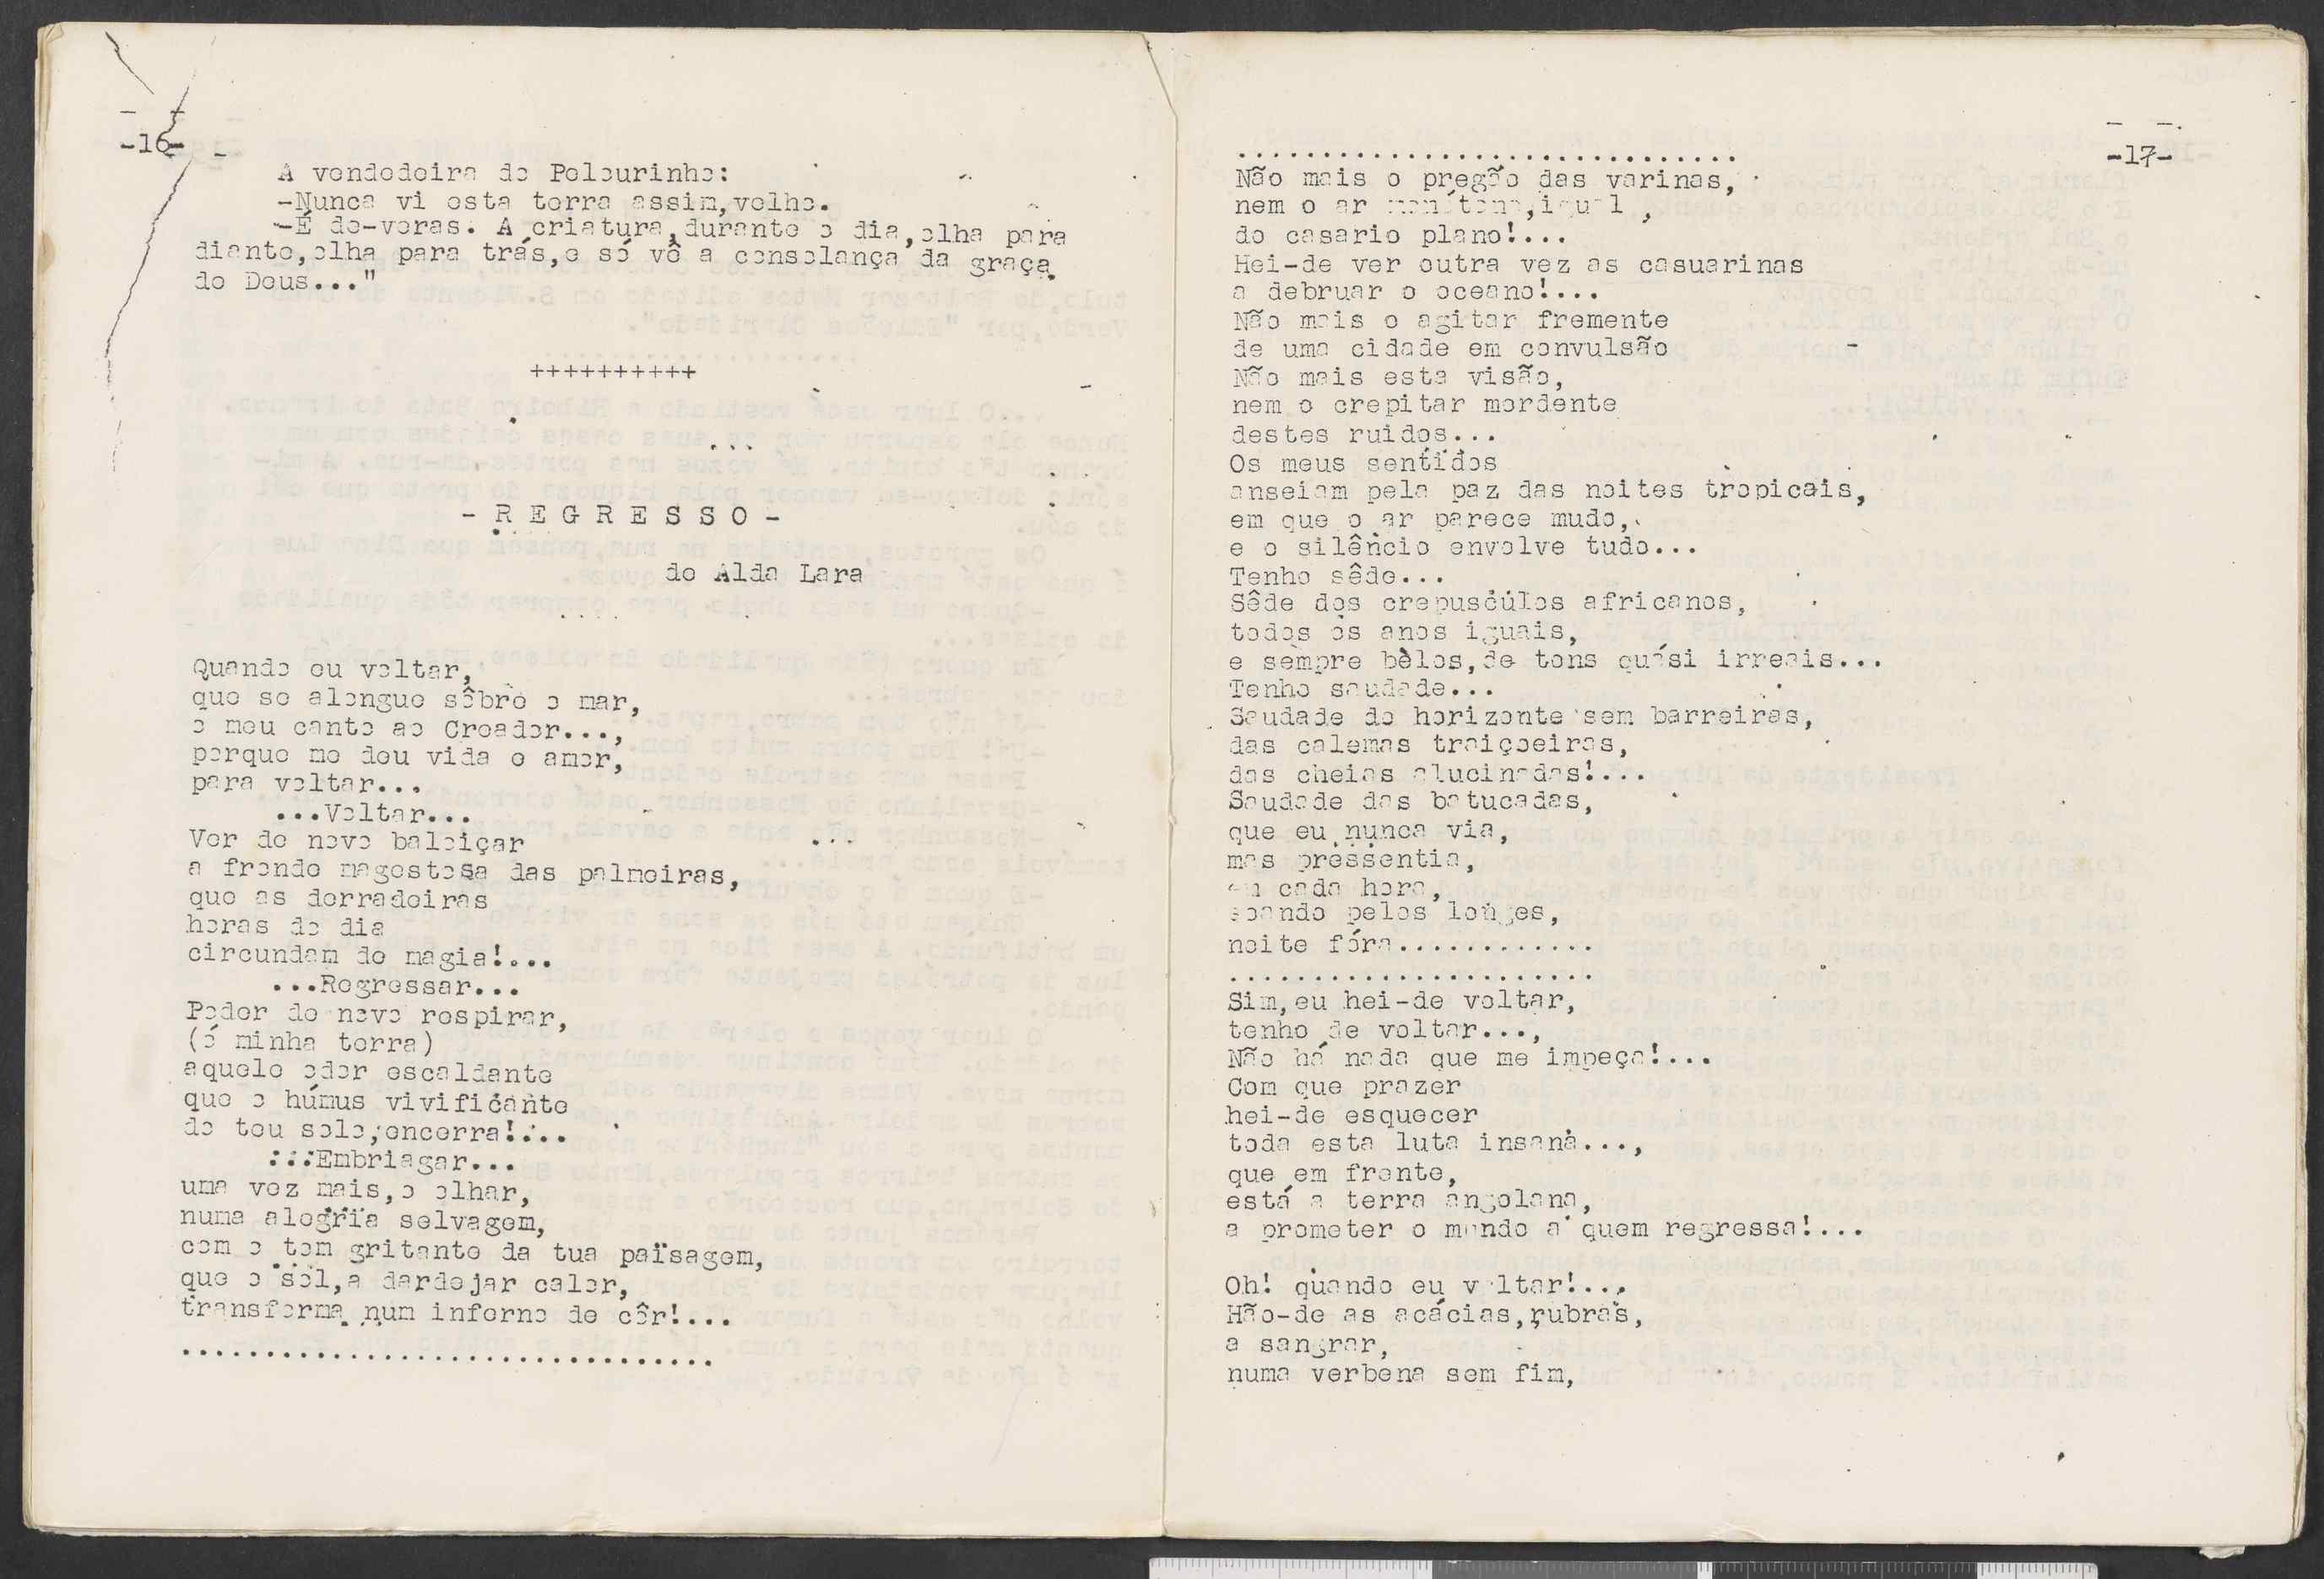 -16-
A vendedeira do Pelourinho:
-Nunca vi esta terra assim,velho.
-É de-veras. A criatura,durante o dia,olha para
diante,olha para trás,e só vê a consolança da graça
de Deus..."
++++++++++
...
- R E G R E S S O -
de Alda Lara
Quando eu voltar,
que se alongue sôbre o mar,
o meu canto ao Creador...,
porque me deu vida e amor,
para voltar...
...Voltar...
Ver de novo baloiçar
a fronde magestosa das palmeiras,
que as derradeiras
horas do dia
circundam de magia!...
...Regressar...
Poder de novo respirar,
(ó minha terra)
aquele odor escaldante
que o húmus vivificante
do teu solo,encerra!...
:::Embriagar...
uma vez mais,o olhar,
numa alegria selvagem,
com o tom gritante da tua païsagem,
que o sol,a dardejar calor,
transforma num inferno de côr!...
................................
-17-
..............................
Não mais o pregão das varinas,
nem o ar monótono,igual,
do casario plano!...
Hei-de ver outra vez as casuarinas
a debruar o oceano!...
Não mais o agitar fremente
de uma cidade em convulsão
Não mais esta visão,
nem o crepitar mordente
destes ruidos...
Os meus sentidos
anseiam pela paz das noites tropicais,
em que o ar parece mudo,
e o silêncio envolve tudo...
Tenho sêde...
Sêde dos crepusculos africanos,
todos os anos iguais,
e sempre bèlos,de tons quási irreais...
Tenho saudade...
Saudade do horizonte sem barreiras,
das calemas traiçoeiras,
das cheias alucinadas!...
Saudade das batucadas,
que eu nunca via,
mas pressentia,
em cada hora,
soando pelos longes,
noite fóra............
......................
Sim,eu hei-de voltar,
tenho de voltar...,
Não há nada que me impeça!...
Com que prazer
hei-de esquecer
toda esta luta insana...,
que em frente,
está a terra angolana,
a prometer o mundo a quem regressa!...
Oh! quando eu voltar!...
Hão-de as acácias,rubras,
a sangrar,
numa verbena sem fim,